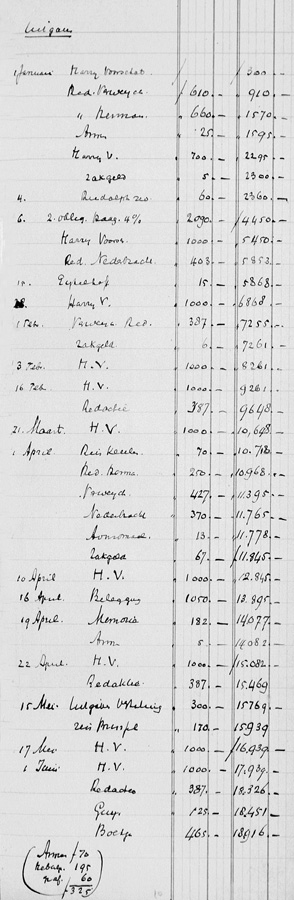 Uitgaven
1 Januari Harry Voorschot / 300.-
Red. Verweyck / 610.- " 910.-
" Herman " 660.- / 1570.-
Arme " 25.- " 1595.-
Harry V. " 700.- " 2295.-
Zakgeld " 5.- " 2300.-
4. Rudolph " 60.- " 2360.-
6. 2 oblig. 4% " 2090.- / 4450.-
Harry Voorsc. " 1000.- " 5450.-
Red. Nederbracht " 403.- " 5853.-
15. " 15.- " 5868.-
28. Harry V. " 1000.- " 6868.-
1 Feb. Verweyck Red. " 387.- " 7255.-
Zakgeld " 6.- " 7261.-
3 Feb. H.V. " 1000.- " 8261.-
16 Feb. H.V. " 1000.- " 9261.-
Redactie " 387.- " 9648.-
21. Maart H.V. " 1000.- " 10.648.-
1 April " 70.- " 10.718.-
Red. Herma " 250.- " 10.968.-
Verweyck " 427.- " 11.395.-
Nederbracht " 370.- " 11.765.-
" 13.- " 11.778.-
Zakgeld " 67.- / 11.845.-
10 April H.V. " 1000.- " 12.845.-
16 April. " 1050.- " 13.895.-
19 April. Memoria " 182.- " 14.077.-
Arm " 5.- " 14.082.-
22 April. H.V. " 1000.- / 15.082.-
Redactie " 387.- 15.469
15 Mei " 300.- 15769.-
" 170.- 15939
17 Mei H.V. " 1000.- / 16.939.-
1 Juni H.V. " 1000.- " 17.939.-
Redactie " 387.- " 18.326.-
" 125.- " 18.451.-
" 465.- 18.916.-
Armen / 70
195
60
/ 325